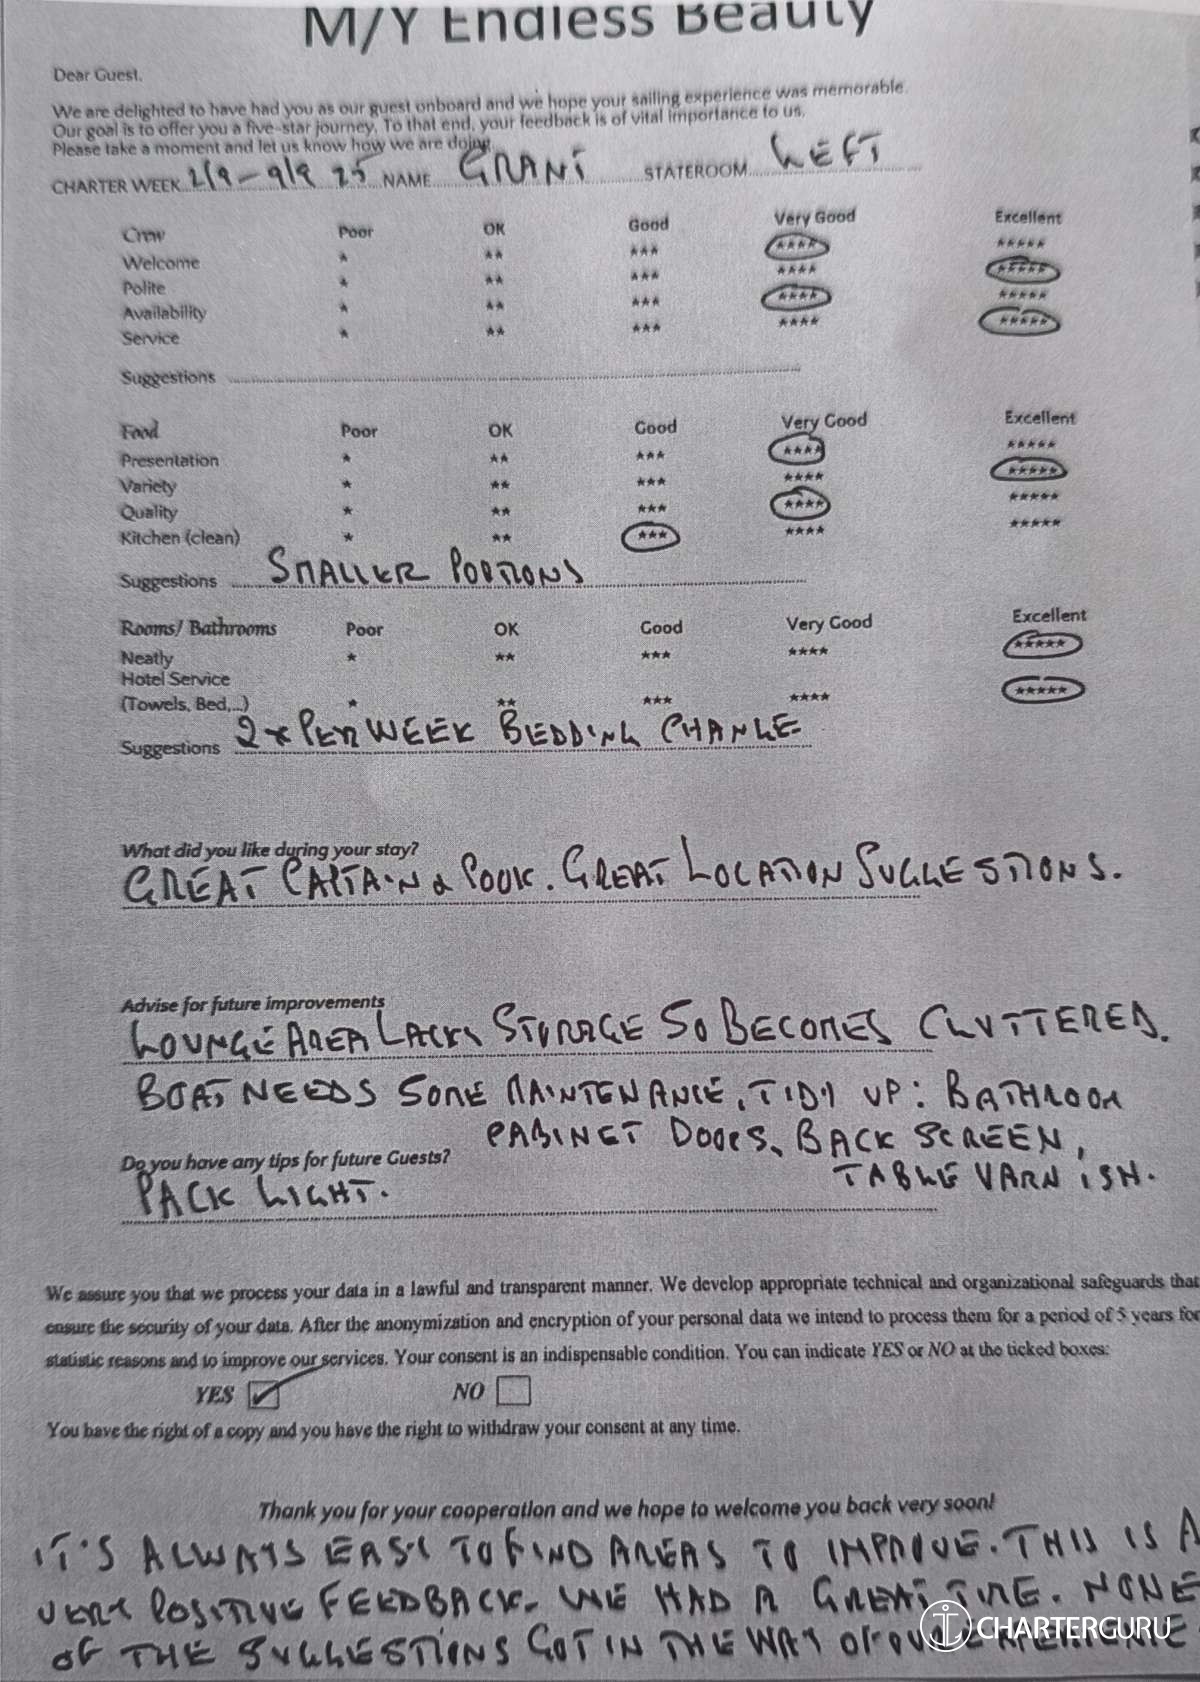 M/Y Endless Beauty
Dear Guest,
We are delighted to have had you as our guest onboard and we hope your sailing experience was memorable.
Our goal is to offer you a five-star journey. To that end, your feedback is of vital importance to us.
Please take a moment and let us know how we are doing.
CHARTER WEEK 2/9 - 9/9 25 NAME GRANT STATEROOM LEFT
Crew Poor OK Good Very Good Excellent
Welcome * ** *** **** *****
Polite * ** *** **** *****
Availability * ** *** **** *****
Service * ** *** **** *****
Suggestions
Food Poor OK Good Very Good Excellent
Presentation * ** *** **** *****
Variety * ** *** **** *****
Quality * ** *** **** *****
Kitchen (clean) * ** *** **** *****
Suggestions SMALLER PORTIONS
Rooms/ Bathrooms Poor OK Good Very Good Excellent
Neatly * ** *** **** *****
Hotel Service
(Towels, Bed,...) * ** *** **** *****
Suggestions 2x PER WEEK BEDDING CHANGE
What did you like during your stay?
GREAT CAPTAIN & COOK. GREAT LOCATION SUGGESTIONS.
Advise for future improvements
LOUNGE AREA LACKS STORAGE SO BECOMES CLUTTERED.
BOAT NEEDS SOME MAINTENANCE, TIDY UP: BATHROOM
CABINET DOORS, BACK SCREEN,
TABLE VARNISH.
Do you have any tips for future Guests?
PACK LIGHT.
We assure you that we process your data in a lawful and transparent manner. We develop appropriate technical and organizational safeguards that
ensure the security of your data. After the anonymization and encryption of your personal data we intend to process them for a period of 5 years for
statistic reasons and to improve our services. Your consent is an indispensable condition. You can indicate YES or NO at the ticked boxes:
YES NO
You have the right of a copy and you have the right to withdraw your consent at any time.
Thank you for your cooperation and we hope to welcome you back very soon!
IT'S ALWAYS EASY TO FIND AREAS TO IMPROVE. THIS IS A
VERY POSITIVE FEEDBACK. WE HAD A GREAT TIME. NONE
OF THE SUGGESTIONS GOT IN THE WAY OF OUR EXPERIENCE
CHARTERGURU